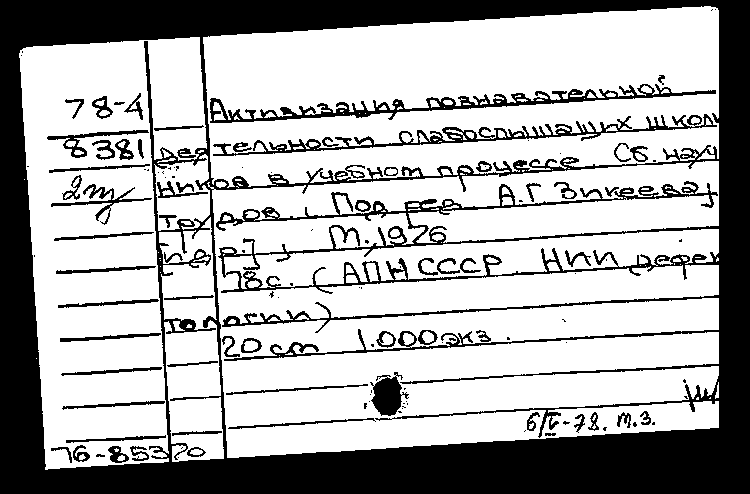 78-4 Активизация познавательной
8381 деятельности слабослышащих школь
2 ников в учебном процессе. Сб. науч
трудов. Под ред. А.Г. Зикеева
[и др.], М., 1976
78 с. (АПН СССР НИИ дефек
тологии)
20 cm 1.000 экз.
6/V-78. М.З.
76-85370